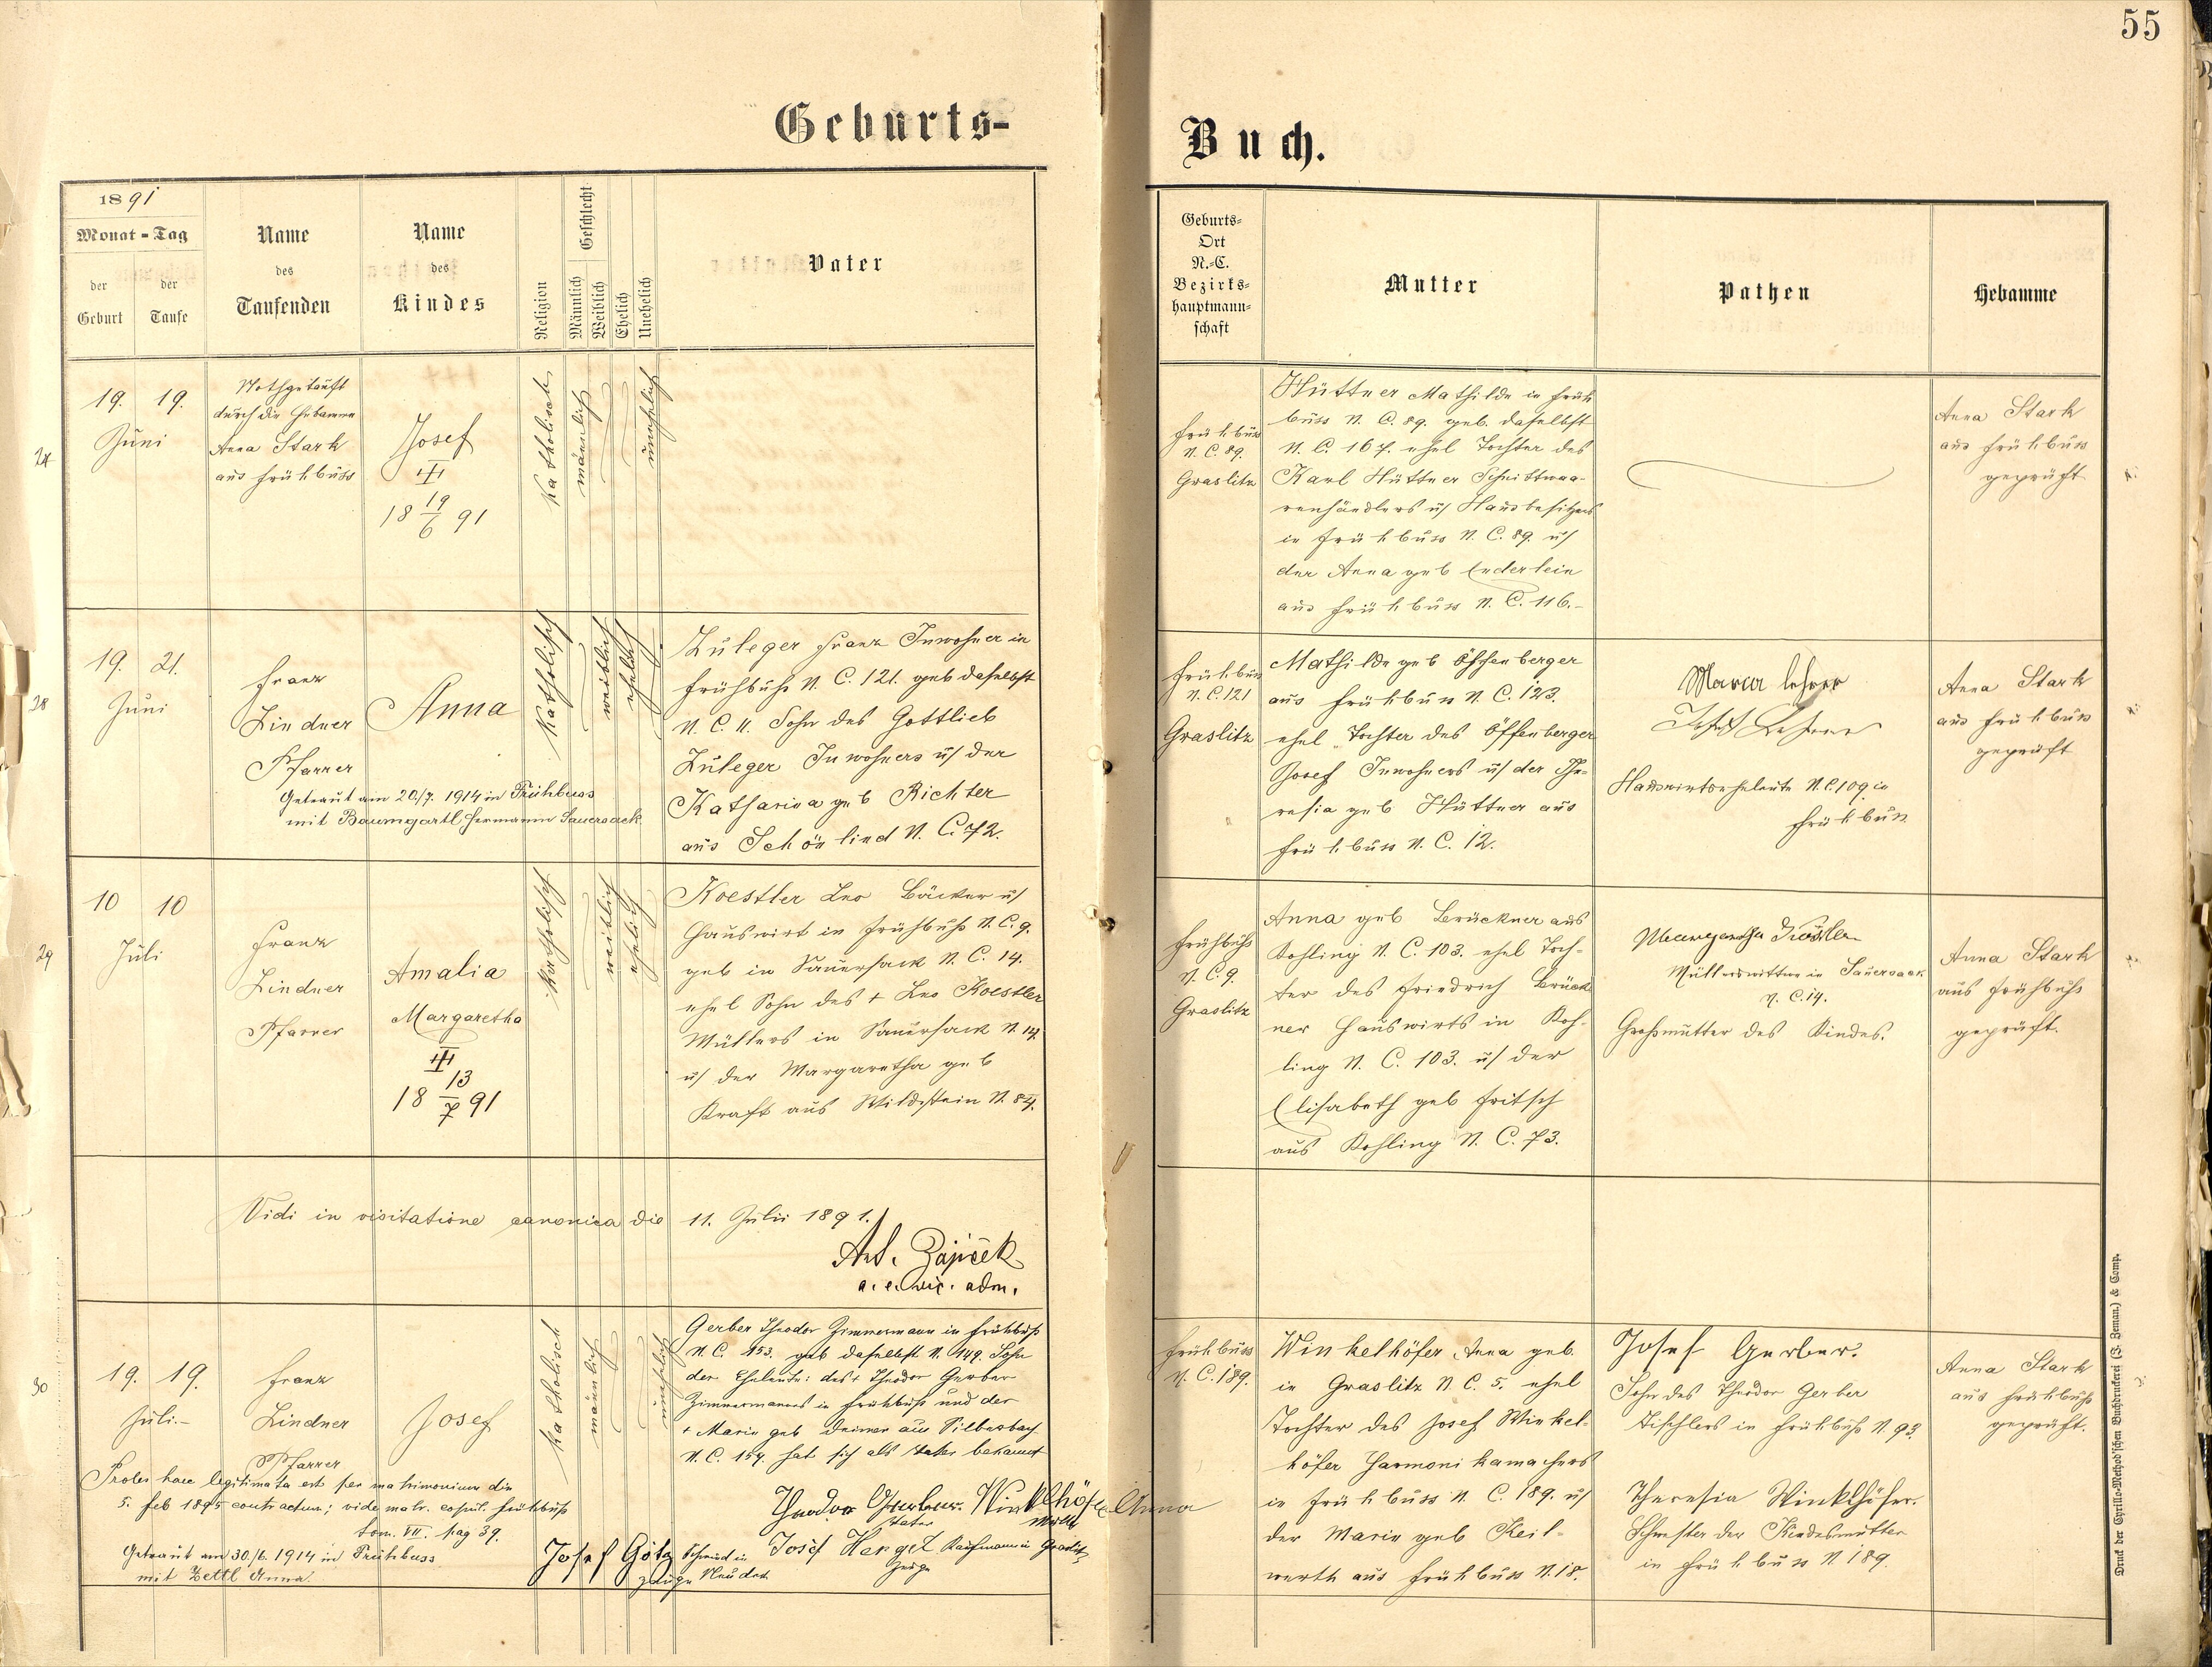 55
Geburts-
Buch.
1891
Monat - Tag
der Geburt
der Taufe
Name
des
Taufenden
Name
des
Kindes
Religion
Geschlecht
Männlich
Weiblich
Ehelich
Unehelich
Vater
Geburts-
Ort
N.-C.
Bezirks-
hauptmann-
schaft
Mutter
Pathen
Hebamme
19. 19.
Juni
Nothgetauft
durch die Hebamme
Anna Stark
aus Frühbuss
Josef
18 19/6 91
katholisch
männlich
unehelich
Frühbuss
N. C. 89.
Graslitz
Hüttner Mathilde in Früh
buss N. C. 89. geb. daselbst
N. C. 167. ehel Tochter des
Karl Hüttner Schnittwaa-
renhändlers u/ Hausbesitzers
in Frühbuss N. C. 89. u/
der Anna geb Enderlein
aus Frühbuss N. C. 116.-
Anna Stark
aus Frühbuss
geprüft
28
19. 21.
Juni
Franz
Lindner
Pfarrer
Anna
katholisch
weiblich
ehelich
Getraut am 20./7. 1914 in Frühbuss
mit Baumgartl Hermann Sauersack
Zuleger Franz Inwohner in
Frühbuß N. C. 121. geb daselbst
N. C. 11. Sohn des Gottlieb
Zuleger Inwohners u/ der
Katharina geb Richter
aus Schönlind N. C. 72.
Frühbuss
N. C. 121
Graslitz
Mathilde geb Öffenberger
aus Frühbuss N. C. 123.
ehel Tochter des Öffenberger
Josef Inwohners u/ der The-
resia geb Hüttner aus
Frühbuss N. C. 12.
Maria Lehrer
Hauswirtseheleute N. C. 109 in
Frühbuss
Anna Stark
aus Frühbuss
geprüft
29
10 10
Juli
Franz
Lindner
Pfarrer
Amalia
Margaretha
18 13/7 91
katholisch
weiblich
ehelich
Koestler Leo Bäcker u/
Hauswirt in Frühbuß N. C. 9.
geb in Sauersack N. C. 14.
ehel Sohn des + Leo Koestler
Müllers in Sauersack N. 14.
u/ der Margaretha geb
Kraft aus Wildstein N. 84.
Frühbuß
N. C. 9.
Graslitz
Anna geb Brückner aus
Kohling N. C. 103. ehel Toch-
ter des Friedrich Brück
ner Hauswirts in Koh-
ling N. C. 103. u/ der
Elisabeth geb Fritsch
aus Kohling N. C. 73.
Margaretha Köstler
Müllerswittwe in Sauersack
N. C. 14.
Großmutter des Kindes.
Anna Stark
aus Frühbuß
geprüft.
Vidi in visitatione canonica die 11. Julii 1891.
Ant. Zajiček
a. e. vic. adm.
30
19. 19.
Juli.-
Franz
Lindner
Pfarrer
Josef
katholisch
männlich
unehelich
Gerber Theodor Zimmermann in Frühbuß
N. C. 153. geb daselbst N. 149. Sohn
der Eheleute: des + Theodor Gerber
Zimmermanns in Frühbuß und der
+ Marie geb Deimer aus Silberbach
N. C. 154. hat sich als Vater bekannt
Proles haec legitimata est per matrimonium die
5. Feb 1895 contractum; vide matr. copul. Frühbuß
tom. VII. pag 39.
Getraut am 30./6. 1914 in Frühbuss
mit Zettl Anna.
Theodor Gerber. Winklhöfer Anna
Vater Mutter
Josef Götz Schmied in
Zeuge Neudek
Josef Hergel Kaufmann in Graslitz
Zeuge
Frühbuss
N. C. 189.
Winkelhöfer Anna geb.
in Graslitz N. C. 5. ehel
Tochter des Josef Winkel-
höfer Harmonikamachers
in Frühbuss N. C. 189. u/
der Marie geb Keil-
werth aus Frühbuss N. 18.
Josef Gerber.
Sohn des Theodor Gerber
Tischlers in Frühbuß N. 93.
Theresia Winklhöfer.
Schwester der Kindesmutter
in Frühbuss N. 189.
Anna Stark
aus Frühbuß
geprüft.
Druck der Cyrillo-Method'schen Buchdruckerei (J. Zeman) & Comp.